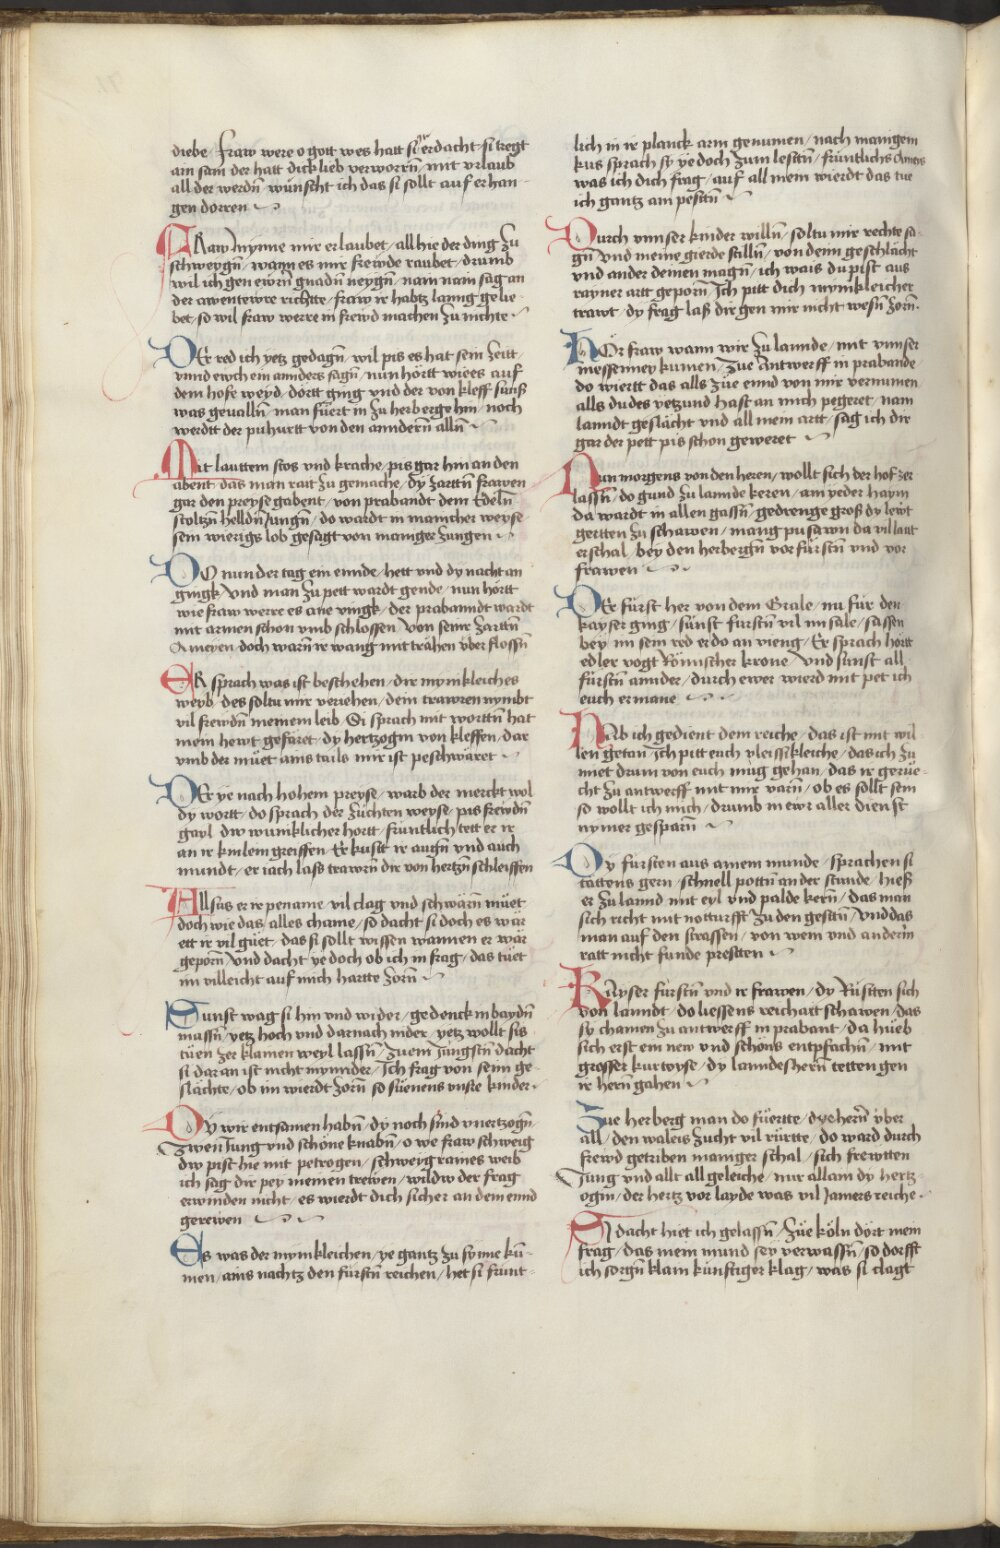 diebe / fraw were o gott wes hatt si erdacht / si tregt
ain sam der hatt dick lieb verworrn̄ / mit vrlaub
all der werdn̄ / wünscht ich das si sollt auf er han-
gen dorren
FRaw mynne mir erlaubet / all hie der ding zu
schweygn̄ / wann es mir frewde raubet / drumb
wil ich gen ewrn̄ gnadn̄ neygn̄ / nain nain sag an
der awentewre richtte / fraw ir habtz lanng gelie-
bet / so wil fraw werre in frewd machen zu nichte
DEr red ich yetz gedagn̄ / wil pis es hat sein zeitt /
vnnd ewch ein annders sagn̄ / nun hörtt wie es auf
dem hofe weyd / dortt ging / vnd der von kleff sunß
was gevalln̄ / man fuert in zu herberge hin / noch
werdtt der puhurtt von den anndern̄ alln̄
Mit lauttem stos vnd krache / pis gar hin an den
abent / das man raitt zu gemache / dy zarttn̄ frawen
gar den preyse gabent / von prabandt dem Edeln̄
stoltzn̄ helldn̄ Jungn̄ / do wardt in mainicher weyse
sein wierigs lob gesagt von maniger zungen
DO nun der tag ein ennde / hett vnd dy nacht an
gingk / vnd man zu pett wardt gende / nun hörtt
wie fraw werre es ane vingk / der prabanndt wardt
mit armen schon vmb schlossen / von seinr zarttn̄
Ameyen / doch warn̄ ir wang mit trähen v̈ber flossn̄
ER sprach was ist beschehen / dir mynikleiches
weyb / des soltu mir veriehen / dein trawren nymbt
vil frewdn̄ meinem leib / Si sprach mit worttn̄ hat
mein hewt gefäret / dy hertzogin von kleffen / dar
vmb der müet ains tails mir ist peschwäret
DEr ye nach hohem preyse / warb der merckt wol
dy wortt / do sprach der züchten weyse / pis frewdn̄
gayl / dw wunklicher hortt / fruntlich tett er ir
an ir kinlein greiffen / Er kustt ir augn̄ vnd auch
mundt / er iach lass trawrn̄ dir von hertzn̄ schleiffen
Allsus er ir pename / vil clag vnd schwärn̄ müet
doch wie das alles chame / so dacht si doch es wär
ett ir vil güet / das si sollt wissen wannen er wär
geporn̄ / Vnd dacht ye doch ob ich in frag / das tüet
im villeicht auf mich hartte zorn̄
Sunst wag si hin vnd wider / gedenck in baydn̄
massn̄ / yetz hoch vnd darnach nider / yetz wollt sis
tüen zer klainen weyl lassn̄ / Zuem Jungstn̄ dacht
si dar an ist nicht mynnder / Ich frag von seim ge-
slächte / ob im wierdt zorn̄ so süenens vnsre kinder
Dy wir entsamen habn̄ / dy noch sind vnertzogn̄
Zwen Jung vnd schöne knabn̄ / o we fraw schweig
dw pist hie mit petrogen / schweyg raines weib
ich sag dir pey meinen trewen / wildw der frag
erwinden nicht / es wierdt dich sicher an dem ennd
gerewen
Es was der mynikleichen / ye gantz zu synne ku-
men / ains nachtz den fürstn̄ reichen / het si frunt-
lich in ir planck arm genumen / nach manigem
kus sprach sy ye doch zum lesttn̄ / früntlichs Ameis
was ich dich frag / auf all mein wierdt das tue
ich gantz am pesttn̄
Durch vnnser kinder willn̄ / soltu mir rechte sa-
gn̄ / vnd meine gierde stilln̄ / von deim geschlächt
vnd ander deinen magn̄ / ich wais du pist aus
rayner artt geporn̄ / Ich pitt dich mynikleicher
trawt / dy frag laß dir gen mir nicht wesn̄ zorn̄
HÖr fraw wann wir zu lannde / mit vnnser
messeniney kumen / Zue Antwerff in prabande
do wiertt das alls züe ennd von mir vernumen
alls du des yetzund hast an mich pegeret / nam
lanndt geslächt vnd all mein artt / sag ich dir
gar der pett pis schon geweret
Nun morgens von den heren / wollt sich der hof zer
lassn̄ / do gund zu lannde keren / ain yeder haym
da wardt in allen gassn̄ / gedrenge groß dy lewt
gertten zu schawen / mang pusawn da vil laut
erschal / bey den herbergn̄ vor fürstn̄ vnd vor
frawen
DEr fürst her von dem Grale / nu für den
kayser ging / sünst furstn̄ vil im sale / sassen
bey im sein red er do an vieng / Er sprach hortt
edler vogt Römischer krone / vnd sunst all
fürstn̄ annder / durch ewer wierd mit pet ich
euch ermane
Hab ich gedient dem reiche / das ist mit wil
len getan / Ich pitt euch vleissikleiche / das ich zu
miet drum von euch mug gehan / das ir gerüe-
cht zu antwerff mit mir varn̄ / ob es sollt sein
so wollt ich mich / drumb in ewr aller dienst
nymer gesparn̄
Dy fursten aus ainem munde / sprachen si
tättens gern / schnell pottn̄ an der stunde / hieß
er zu lannd mit eyl vnd palde kern̄ / das man
sich richt mit notturfft zu den gestn̄ / vnd das
man auf den strassen / von wein vnd anderm
ratt nicht funde presttten
KAyser fürstn̄ vnd ir frawen / dy Rüsten sich
von lanndt / do liessens reichait schawen / das
sy chamen zu antwerff in prabant / da hüeb
sich erst ein new vnd schöns entpfachn̄ / mit
grosser kurtzwyse / dy lanndeshern̄ tetten gen
ir hern̄ gahen
Zue herberg man do füertte / dye hern̄ v̈ber
all / den waleis zucht vil rürtte / do ward durch
frewd getriben maniger schal / sich frewtten
Jung vnd allt all geleiche / nur allain dy hertz-
ogin / der hertz vor layde was vil Jamers reiche
SI dacht hiet ich gelassn̄ / Züe köln dort mein
frag / das mein mund sey verwassn̄ / so dorfft
ich sorgn̄ klain künftiger klag / was si clagt